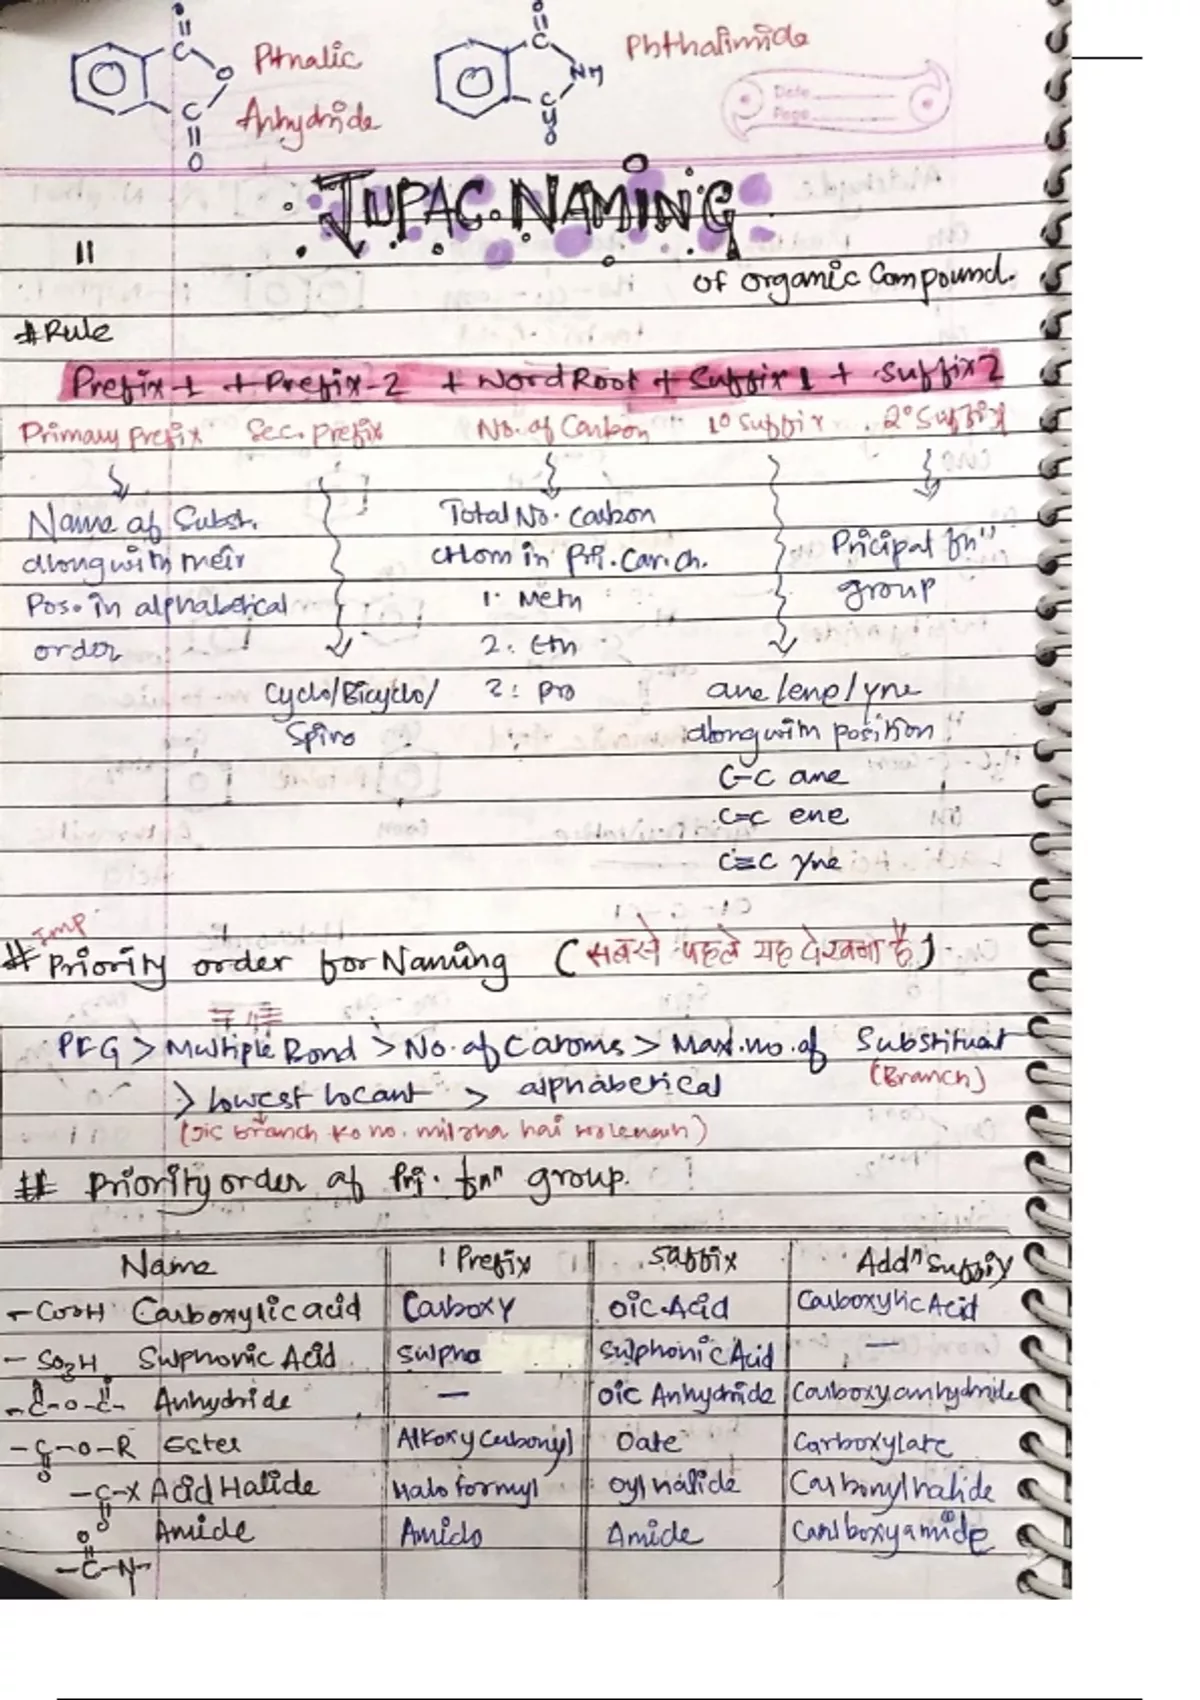 Pthalic
Anhydride
Phthalimide
Date
Page
IUPAC NAMING
of organic Compound.
#Rule
Prefix-1 + Prefix-2 + Word Root + Suffix 1 + Suffix 2
Primary prefix Sec. prefix No. of Carbon 1° Suffix 2° Suffix
Name of Subst. Total No. Carbon
along with their Atom in Pri. Car. Ch. Pricipal fnⁿ
Pos. in alphabetical 1. Meth group
order 2. Eth
Cyclo/Bicyclo/ 2: pro ane/ene/yne
Spiro along with position
C-C ane
C=C ene
C≡C yne
Imp
# Priority order for Naming (सबसे पहले यह देखना है)
PFG > Multiple Bond > No. of C atoms > Max. no. of Substituent
(Branch)
> lowest locant > alphabetical
(jis branch ko no.
## Priority order of Pri. fnⁿ group.
Name 1 Prefix Suffix Addⁿ Suffix
-COOH Carboxylic acid Carboxy oic Acid Carboxylic Acid
-SO3H Sulphonic Acid Sulpho Sulphonic Acid —
-C-O-C- Anhydride — oic Anhydride Carboxy anhydride
-C-O-R Ester Alkoxy Carbonyl Oate Carboxylate
-C-X Acid Halide Halo formyl oyl halide Carbonyl halide
Amide Amido Amide Carboxyamide
-C-N-